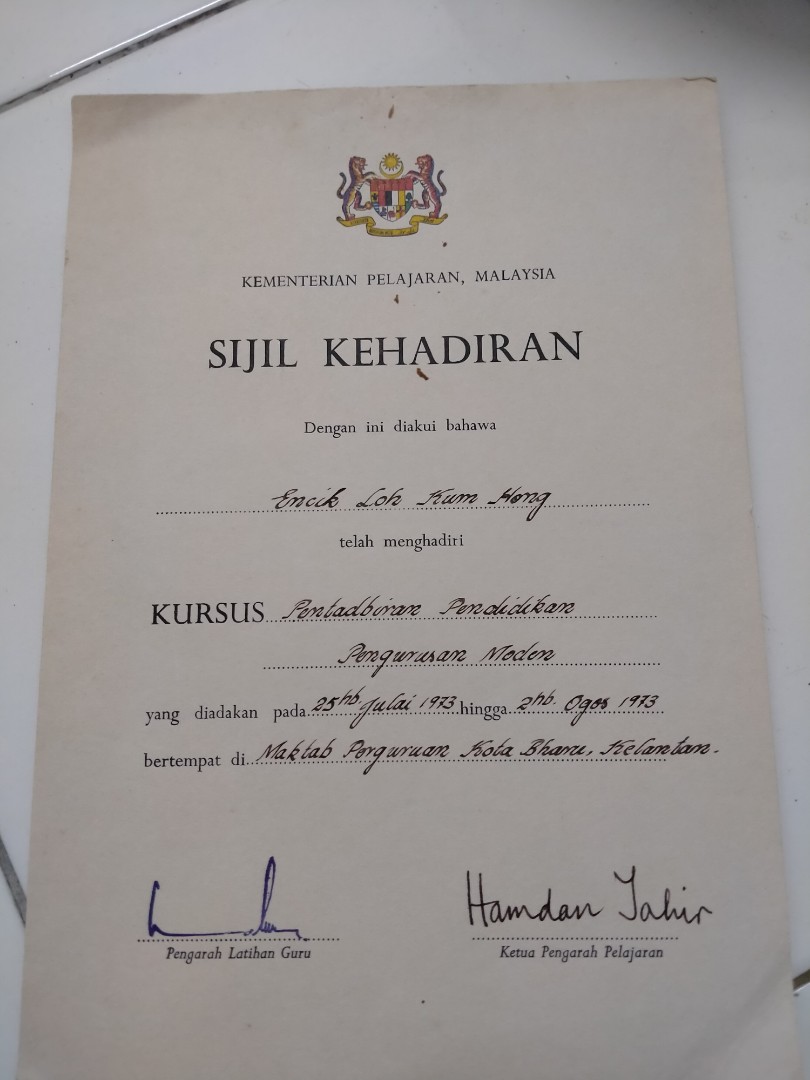 KEMENTERIAN PELAJARAN, MALAYSIA
SIJIL KEHADIRAN
Dengan ini diakui bahawa
Encik Loh Kum Hong
telah menghadiri
KURSUS Pentadbiran Pendidikan
Pengurusan Moden
yang diadakan pada 25hb. Julai 1973 hingga 2hb. Ogos 1973
bertempat di Maktab Perguruan Kota Bharu, Kelantan.
Hamdan Tahir
Pengarah Latihan Guru
Ketua Pengarah Pelajaran